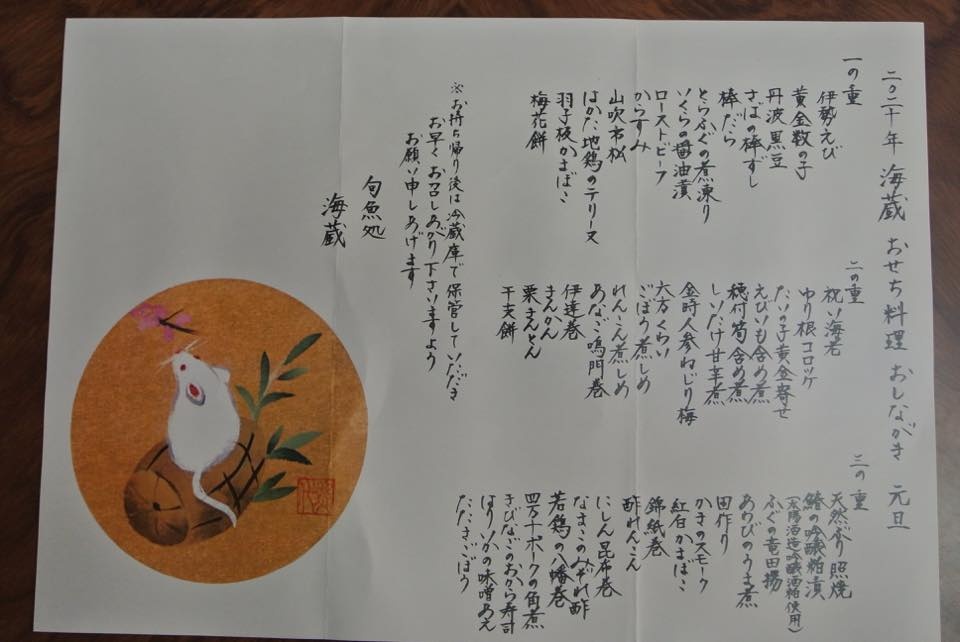 二〇二〇年 海蔵 おせち料理 おしながき 元旦
一の重
伊勢えび
黄金数の子
丹波黒豆
さばの棒ずし
棒だら
とらふぐの煮凍り
いくらの醤油漬
ローストビーフ
からすみ
山吹市松
はかた地鶏のテリーヌ
羽子板かまぼこ
梅花餅
二の重
祝い海老
ゆり根コロッケ
たいの子黄金寄せ
えびいも含め煮
穂付筍含め煮
しいたけ甘辛煮
金時人参ねじり梅
六方くわい
ごぼう煮しめ
れんこん煮しめ
あなご鳴門巻
伊達巻
きんかん
栗きんとん
干支餅
三の重
天然ぶり照焼
鰆の吟醸粕漬
(太陽酒造吟醸酒粕使用)
ふぐの竜田揚
あわびのうま煮
田作り
かきのスモーク
紅白かまぼこ
錦紙巻
酢れんこん
にしん昆布巻
なまこのみぞれ酢
若鶏の八幡巻
四万十ポークの角煮
きびなごのおから寿司
はりいかの味噌あえ
たたきごぼう
※お持ち帰り後は冷蔵庫で保管していただき
お早くお召しあがり下さいますよう
お願い申しあげます
旬魚処
海蔵